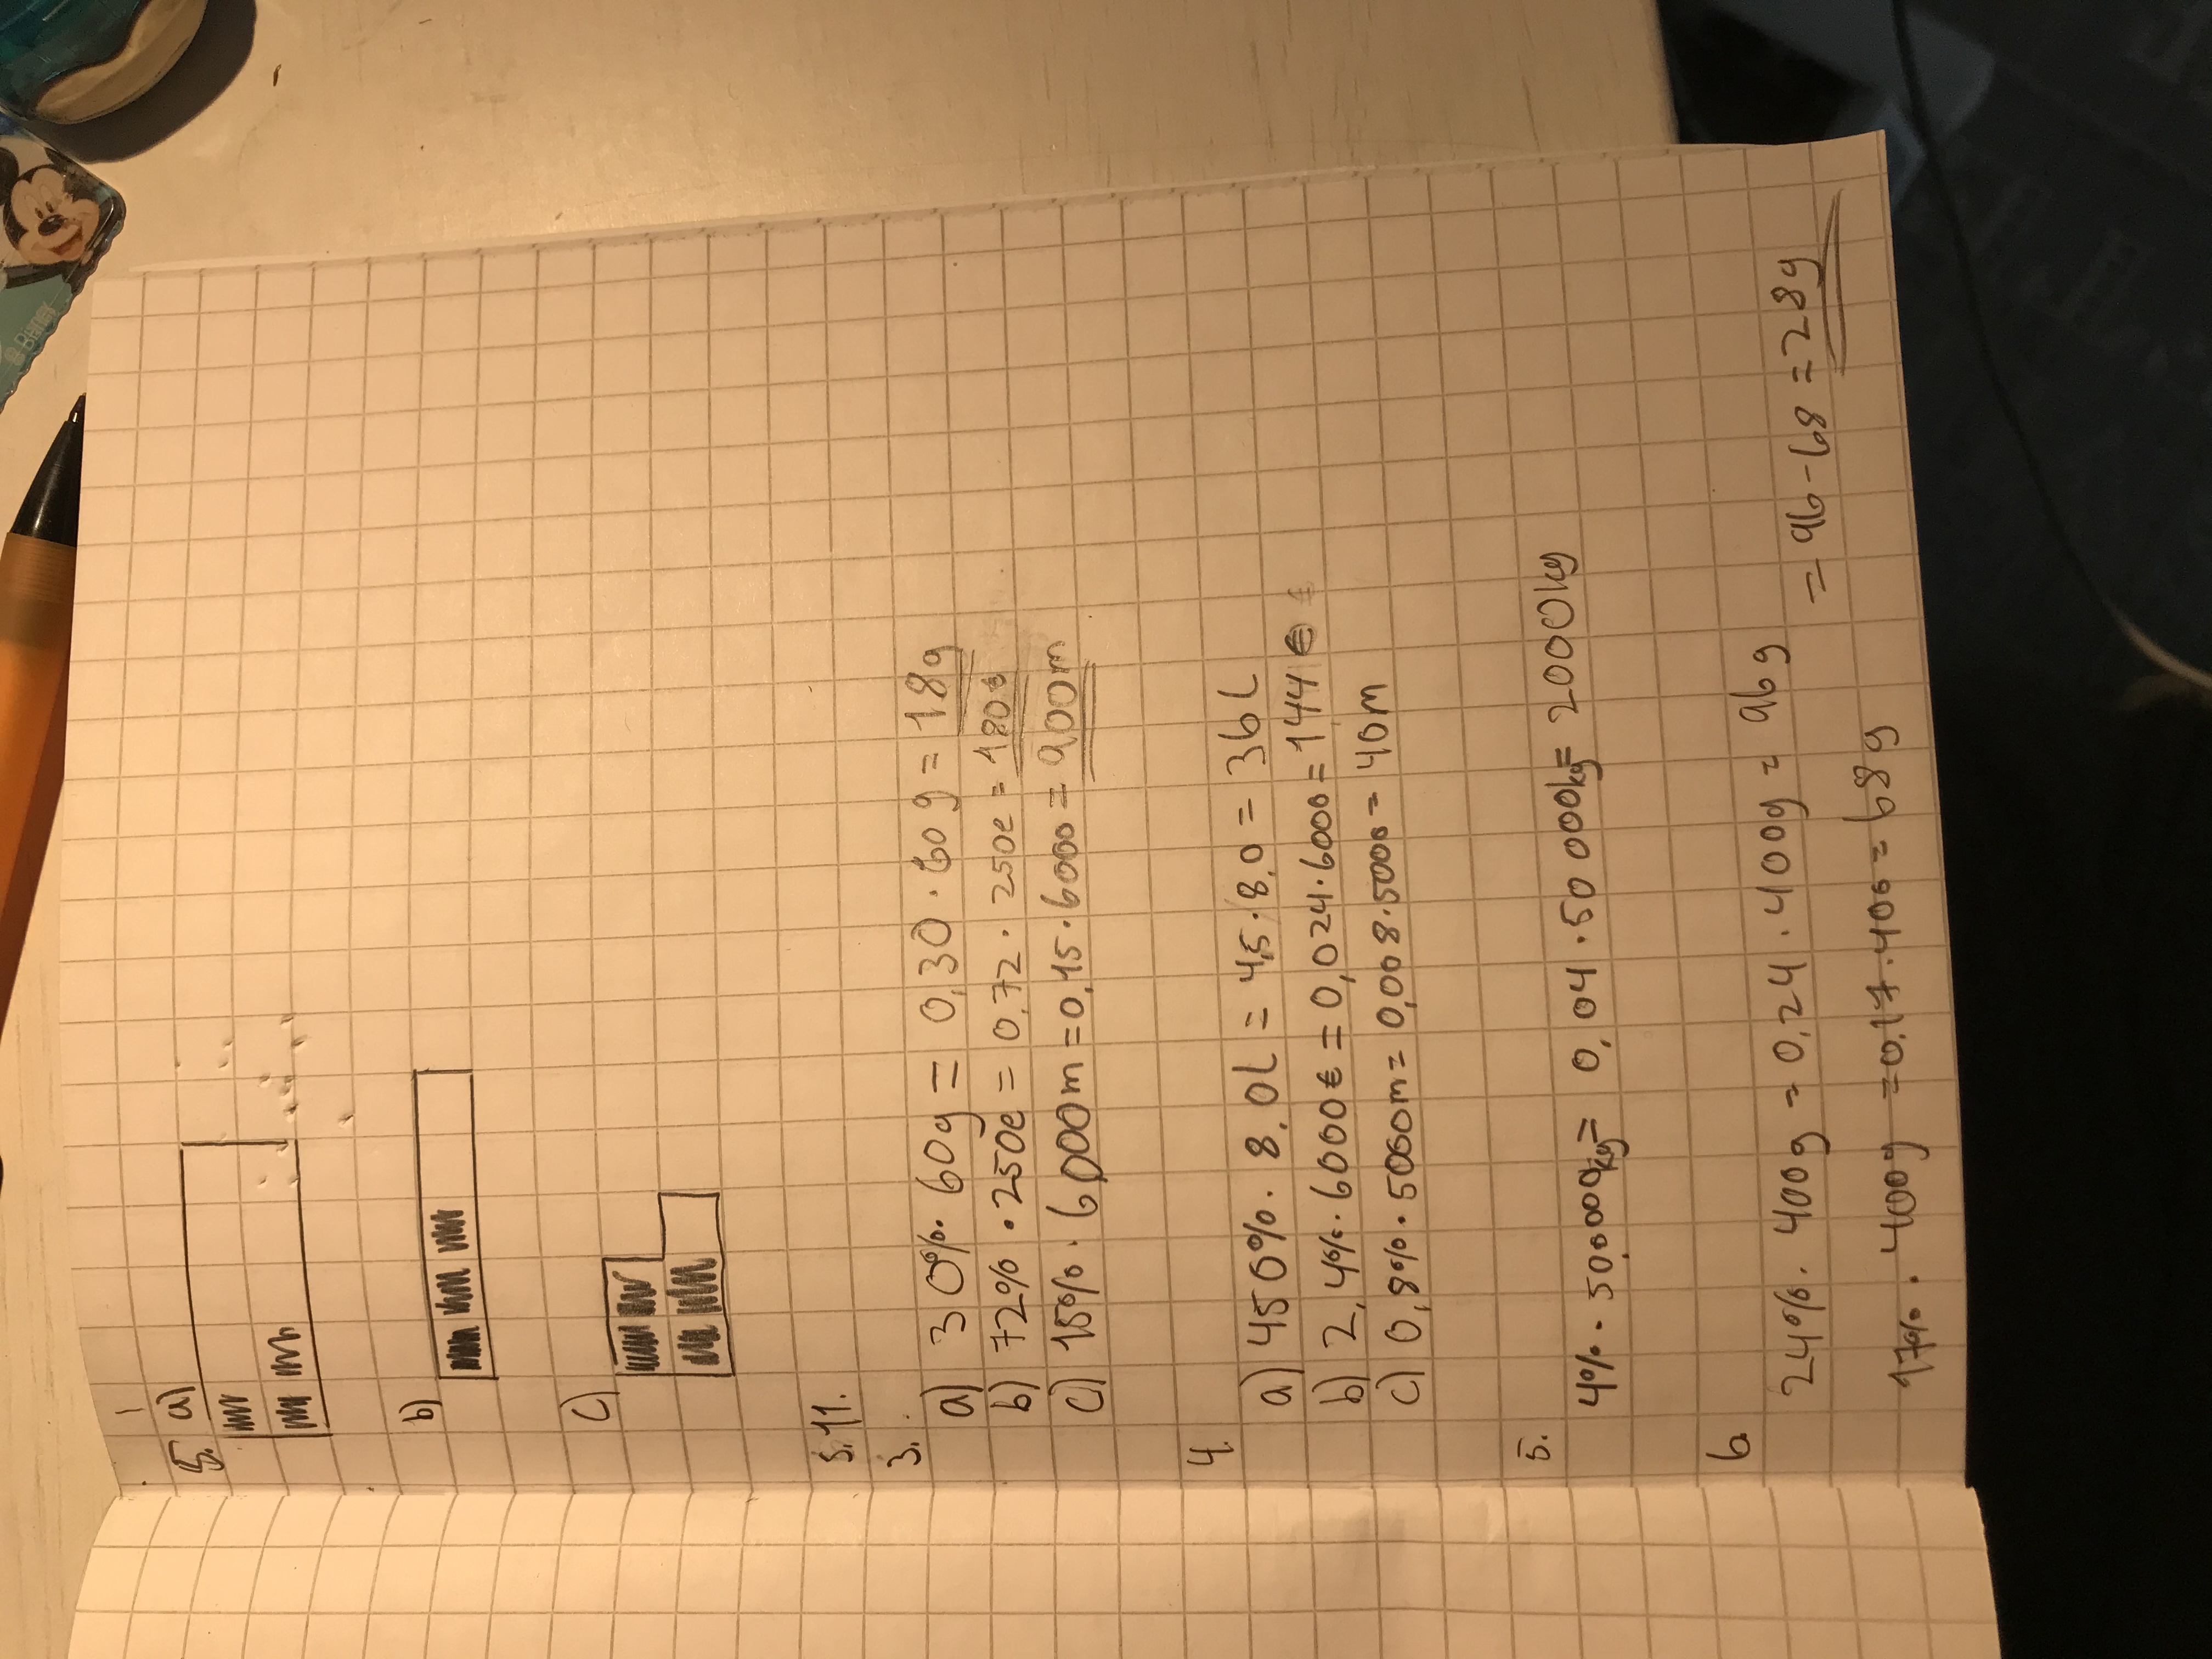 5. a)
b)
c)
5.11.
3.
a) 30% · 60g = 0,30 · 60g = 18g
b) 72% · 250e = 0,72 · 250e = 180€
c) 15% · 6000m = 0,15 · 6000 = 900m
4.
a) 450% · 8,0L = 4,5 · 8,0 = 36L
b) 2,4% · 6000€ = 0,024 · 6000 = 144€
c) 0,8% · 5000m = 0,008 · 5000 = 40m
5.
4% · 50000kg = 0,04 · 50 000kg = 2000kg
6.
24% · 400g = 0,24 · 400g = 96g
= 96-68 = 28g
17% · 400g = 0,17 · 400 = 68g